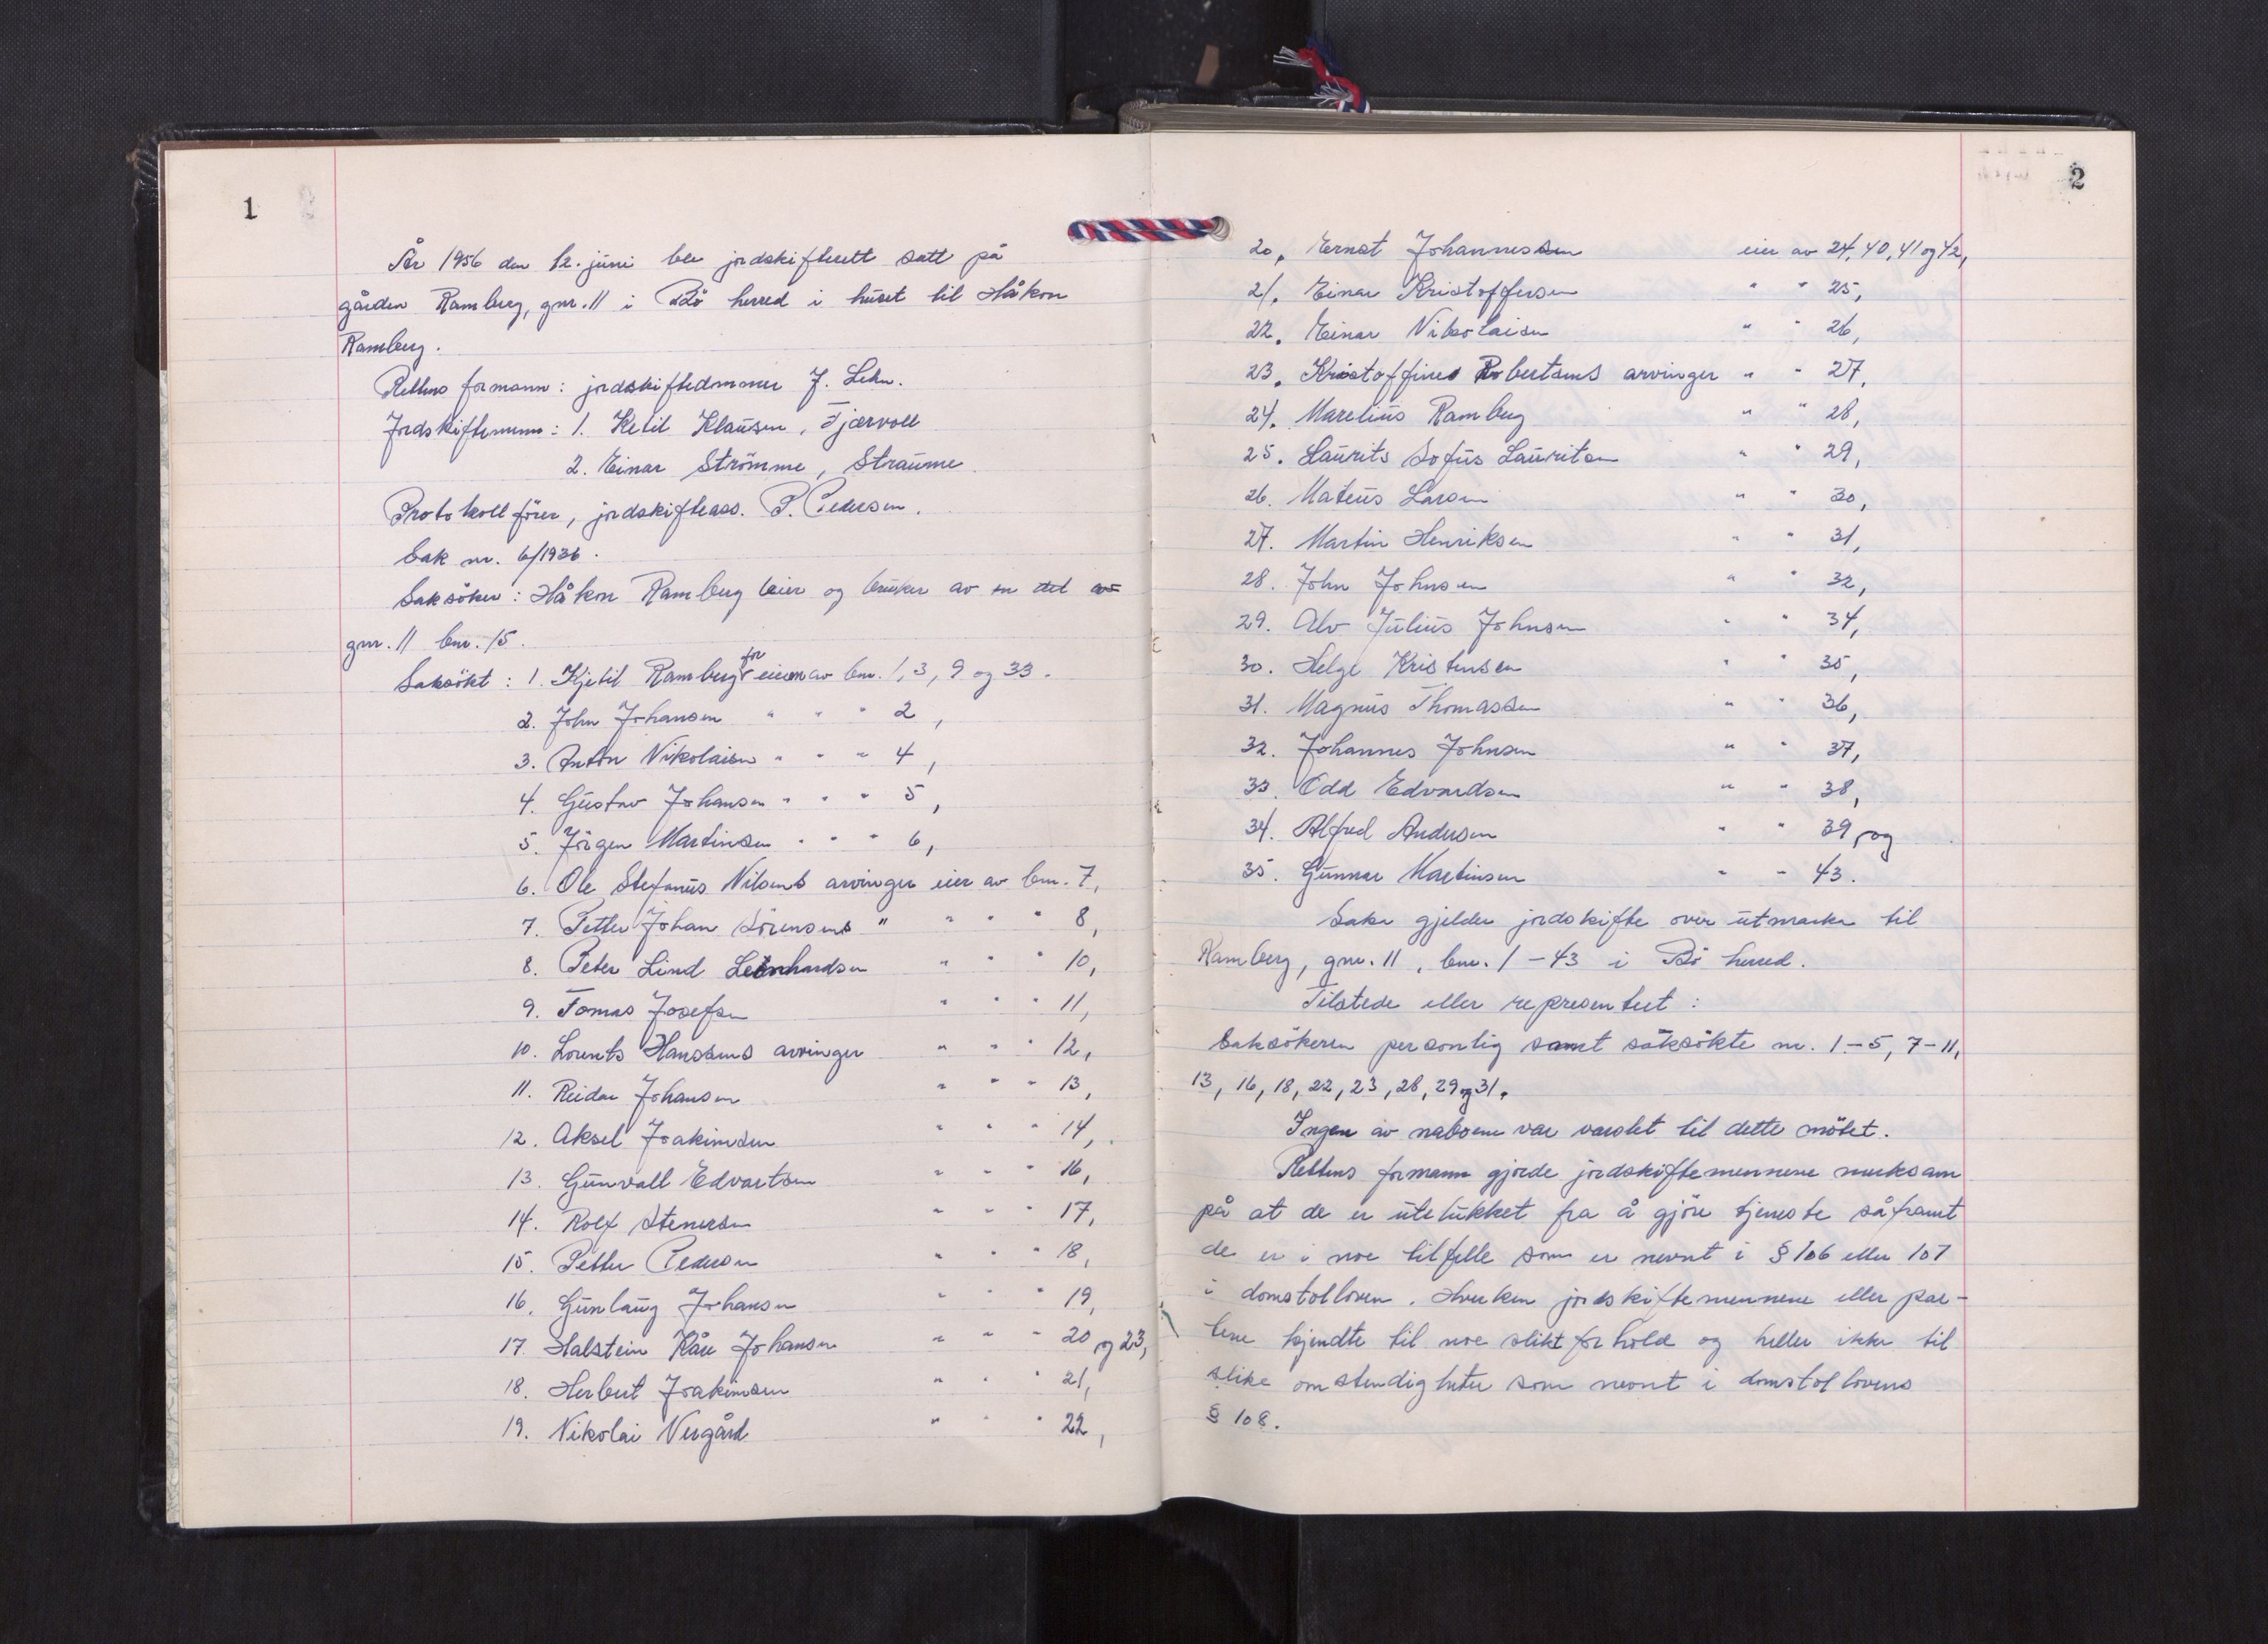 1
År 1956 den 12. juni ble jordskifterett satt på
gården Ramberg, gnr. 11 i Bö herred i huset til Håkon
Ramberg.
Rettens formann: jordskiftedommer J. Lehn.
Jordskiftemenn: 1. Ketil Klausen, Fjærvoll
2. Einar Strömme, Straume
Protokollförer, jordskifteass. P. Pedersen.
Sak nr. 6/1936.
Saksöker: Håkon Ramberg eier og bruker av en del av
gnr. 11 bnr. 15.
Saksökt: 1. Kjetil Ramberg for eieren av bnr. 1, 3, 9 og 33.
2. John Johansen " " " 2,
3. Anton Nikolaisen " " " 4,
4. Gustav Johansen " " " 5,
5. Jörgen Martinsen " " " 6,
6. Ole Stefanus Nilsens arvinger eier av bnr. 7,
7. Petter Johan Sörensens " " " " 8,
8. Peter Lind Leonhardsen " " " 10,
9. Tomas Josefsen " " " 11,
10. Lorents Hanssens arvinger " " " 12,
11. Reidar Johansen " " " 13,
12. Aksel Joakimsen " " " 14,
13. Gunvall Edvartsen " " " 16,
14. Rolf Stenersen " " " 17,
15. Petter Pedersen " " " 18,
16. Gunlaug Johansen " " " 19,
17. Halstein Kåre Johansen " " " 20 og 23,
18. Herbert Joakimsen " " " 21,
19. Nikolai Vergård " " " 22,
2
20. Ernst Johannessen eier av 24, 40, 41 og 42,
21. Einar Kristoffersen " " 25,
22. Einar Nikolaisen " " 26,
23. Kristoffine Robertsens arvinger " " 27,
24. Marelius Ramberg " " 28,
25. Laurits Sofus Lauritsen " " 29,
26. Mateus Larsen " " 30,
27. Martin Henriksen " " 31,
28. John Johnsen " " 32,
29. Alv Julius Johnsen " " 34,
30. Helge Kristensen " " 35,
31. Magnus Thomassen " " 36,
32. Johannes Johnsen " " 37,
33. Odd Edvardsen " " 38,
34. Alfred Andersen " " 39, og
35. Gunnar Martinsen " " 43.
Saken gjelder jordskifte over utmarka til
Ramberg, gnr. 11, bnr. 1 - 43 i Bö herred.
Tilstede eller representert:
Saksökeren personlig samt saksökte nr. 1 - 5, 7 - 11,
13, 16, 18, 22, 23, 28, 29 og 31.
Ingen av naboene var varslet til dette mötet.
Rettens formann gjorde jordskiftemennene merksam
på at de er utelukket fra å gjöre tjeneste såframt
de er i noe tilfelle som er nevnt i § 106 eller 107
i domstolloven. Hverken jordskiftemennene eller par-
tene kjendte til noe slikt forhold og heller ikke til
slike omstendigheter som nevnt i domstollovens
§ 108.